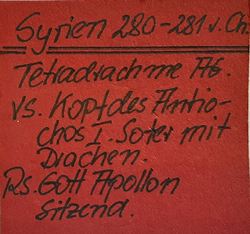 Syrien 280-281 v. Ch.
Tetradrachme AG.
VS. Kopf des Antio-
chos I. Soter mit
Drachen.
RS. Gott Apollon
sitzend.